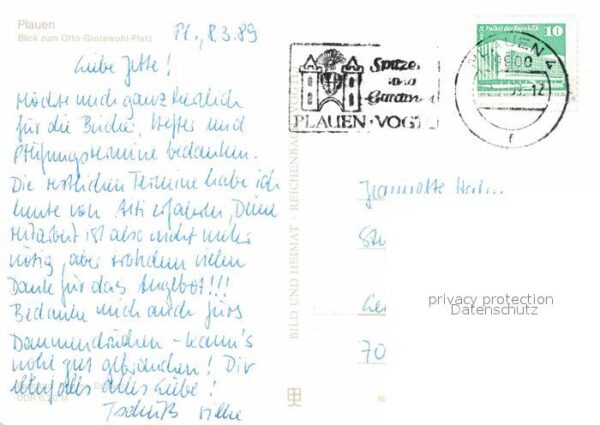 Plauen
Blick zum Otto-Grotewohl-Platz
Pl., 8.3.89
Liebe Jette!
Möchte mich ganz herzlich
für die Bücher, Hefter und
Prüfungstermine bedanken.
Die restlichen Termine habe ich
heute von erfahren, Deine
Mitarbeit ist also nicht mehr
nötig, aber trotzdem vielen
Dank für das Angebot!!!
Bedanke mich auch fürs
Daumendrücken - kann's
wohl gut gebrauchen! Dir
alles Liebe!
Tschüß
DDR
BILD UND HEIMAT · REICHENBACH
Spitzen
und
Gardinen
PLAUEN · VOGTL
PLAUEN 4
9900
12
f
Palast der Republik
10
Jeannette
St
70
privacy protection
Datenschutz